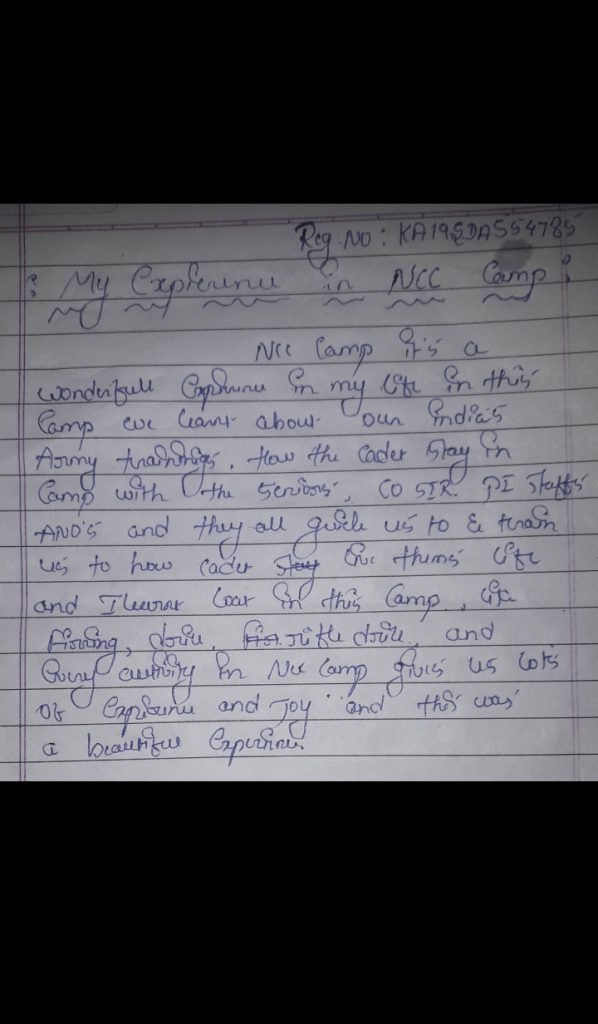 Reg. No : KA19SDA554785
: My Expierence in NCC Camp :
Ncc Camp it's a
wonderfull Expirence in my life in this
Camp we learnt about our India's
Army trainings, How the Cadet stay in
Camp with the Seniors, CO SIR. PI Staffs
ANO'S and they all guide us to & train
us to how Cadet stay live thems life
and I learnt loat in this Camp, like
Firing, drill, rifle drill, and
Every activity in Ncc Camp gives us lots
of Expirence and Joy and this was
a beautiful Expirence.